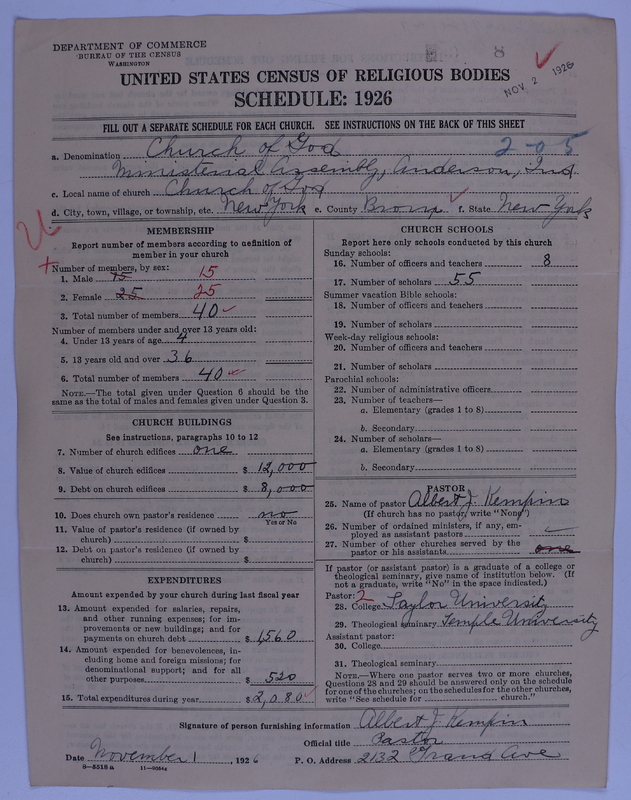 DEPARTMENT OF COMMERCE
BUREAU OF THE CENSUS
WASHINGTON
8
NOV 2 1926
UNITED STATES CENSUS OF RELIGIOUS BODIES
SCHEDULE: 1926
FILL OUT A SEPARATE SCHEDULE FOR EACH CHURCH. SEE INSTRUCTIONS ON THE BACK OF THIS SHEET
a. Denomination Church of God 2-05
Ministerial Assembly, Anderson, Ind.
c. Local name of church Church of God
d. City, town, village, or township, etc. New York e. County Bronx f. State New York
MEMBERSHIP
Report number of members according to definition of
member in your church
Number of members, by sex:
1. Male 15 15
2. Female 25 25
3. Total number of members 40
Number of members under and over 13 years old:
4. Under 13 years of age 4
5. 13 years old and over 36
6. Total number of members 40
NOTE.—The total given under Question 6 should be
same as the total of males and females given under Question 3.
CHURCH BUILDINGS
See instructions, paragraphs 10 to 12
7. Number of church edifices one
8. Value of church edifices $ 12,000
9. Debt on church edifices $ 8,000
10. Does church own pastor's residence no
Yes or No
11. Value of pastor's residence (if owned by
church) $
12. Debt on pastor's residence (if owned by
church) $
EXPENDITURES
Amount expended by your church during last fiscal year
13. Amount expended for salaries, repairs,
and other running expenses; for im-
provements or new buildings; and for
payments on church debt $ 1,560
14. Amount expended for benevolences, in-
cluding home and foreign missions; for
denominational support; and for all
other purposes $ 520
15. Total expenditures during year $ 2,080
CHURCH SCHOOLS
Report here only schools conducted by this church
Sunday schools:
16. Number of officers and teachers 8
17. Number of scholars 55
Summer vacation Bible schools:
18. Number of officers and teachers
19. Number of scholars
Week-day religious schools:
20. Number of officers and teachers
21. Number of scholars
Parochial schools:
22. Number of administrative officers
23. Number of teachers—
a. Elementary (grades 1 to 8)
b. Secondary
24. Number of scholars—
a. Elementary (grades 1 to 8)
b. Secondary
PASTOR
25. Name of pastor Albert J. Kempin
(If church has no pastor, write "None")
26. Number of ordained ministers, if any, em-
ployed as assistant pastors
27. Number of other churches served by the
pastor or his assistants one
If pastor (or assistant pastor) is a graduate of a college or
theological seminary, give name of institution below. (If
not a graduate, write "No" in the space indicated.)
Pastor: 2
28. College Taylor University
29. Theological seminary Temple University
Assistant pastor:
30. College
31. Theological seminary
NOTE.—Where one pastor serves two or more churches,
Questions 28 and 29 should be answered only on the schedule
for one of the churches; on the schedules for the other churches,
write "See schedule for church."
Signature of person furnishing information Albert J. Kempin
Official title Pastor
Date November 1, 1926 P. O. Address 2132 Grand Ave
8—5518a